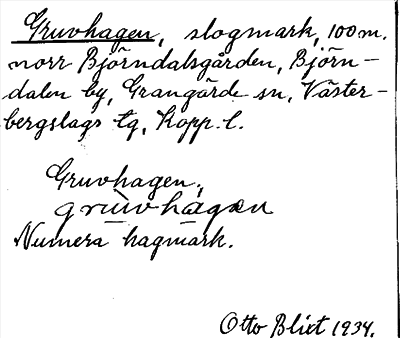 Gruvhagen, slogmark, 100 m.
norr Björndalsgården, Björn-
dalen by, Grangärde sn, Väster-
bergslags tg, Kopp. l.
Gruvhagen,
grùvhàgæn
Numera hagmark.
Otto Blixt 1934.